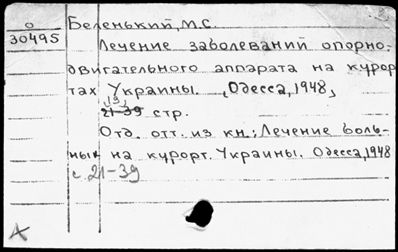 О
30495
Беленький, М.С.
Лечение заболеваний опорно-
двигательного аппарата на курор
тах Украины. (Одесса, 1948,
19
21-39 стр.
Отд. отт. из кн.: Лечение боль-
ных на курорт. Украины. Одесса, 1948
с 21-39